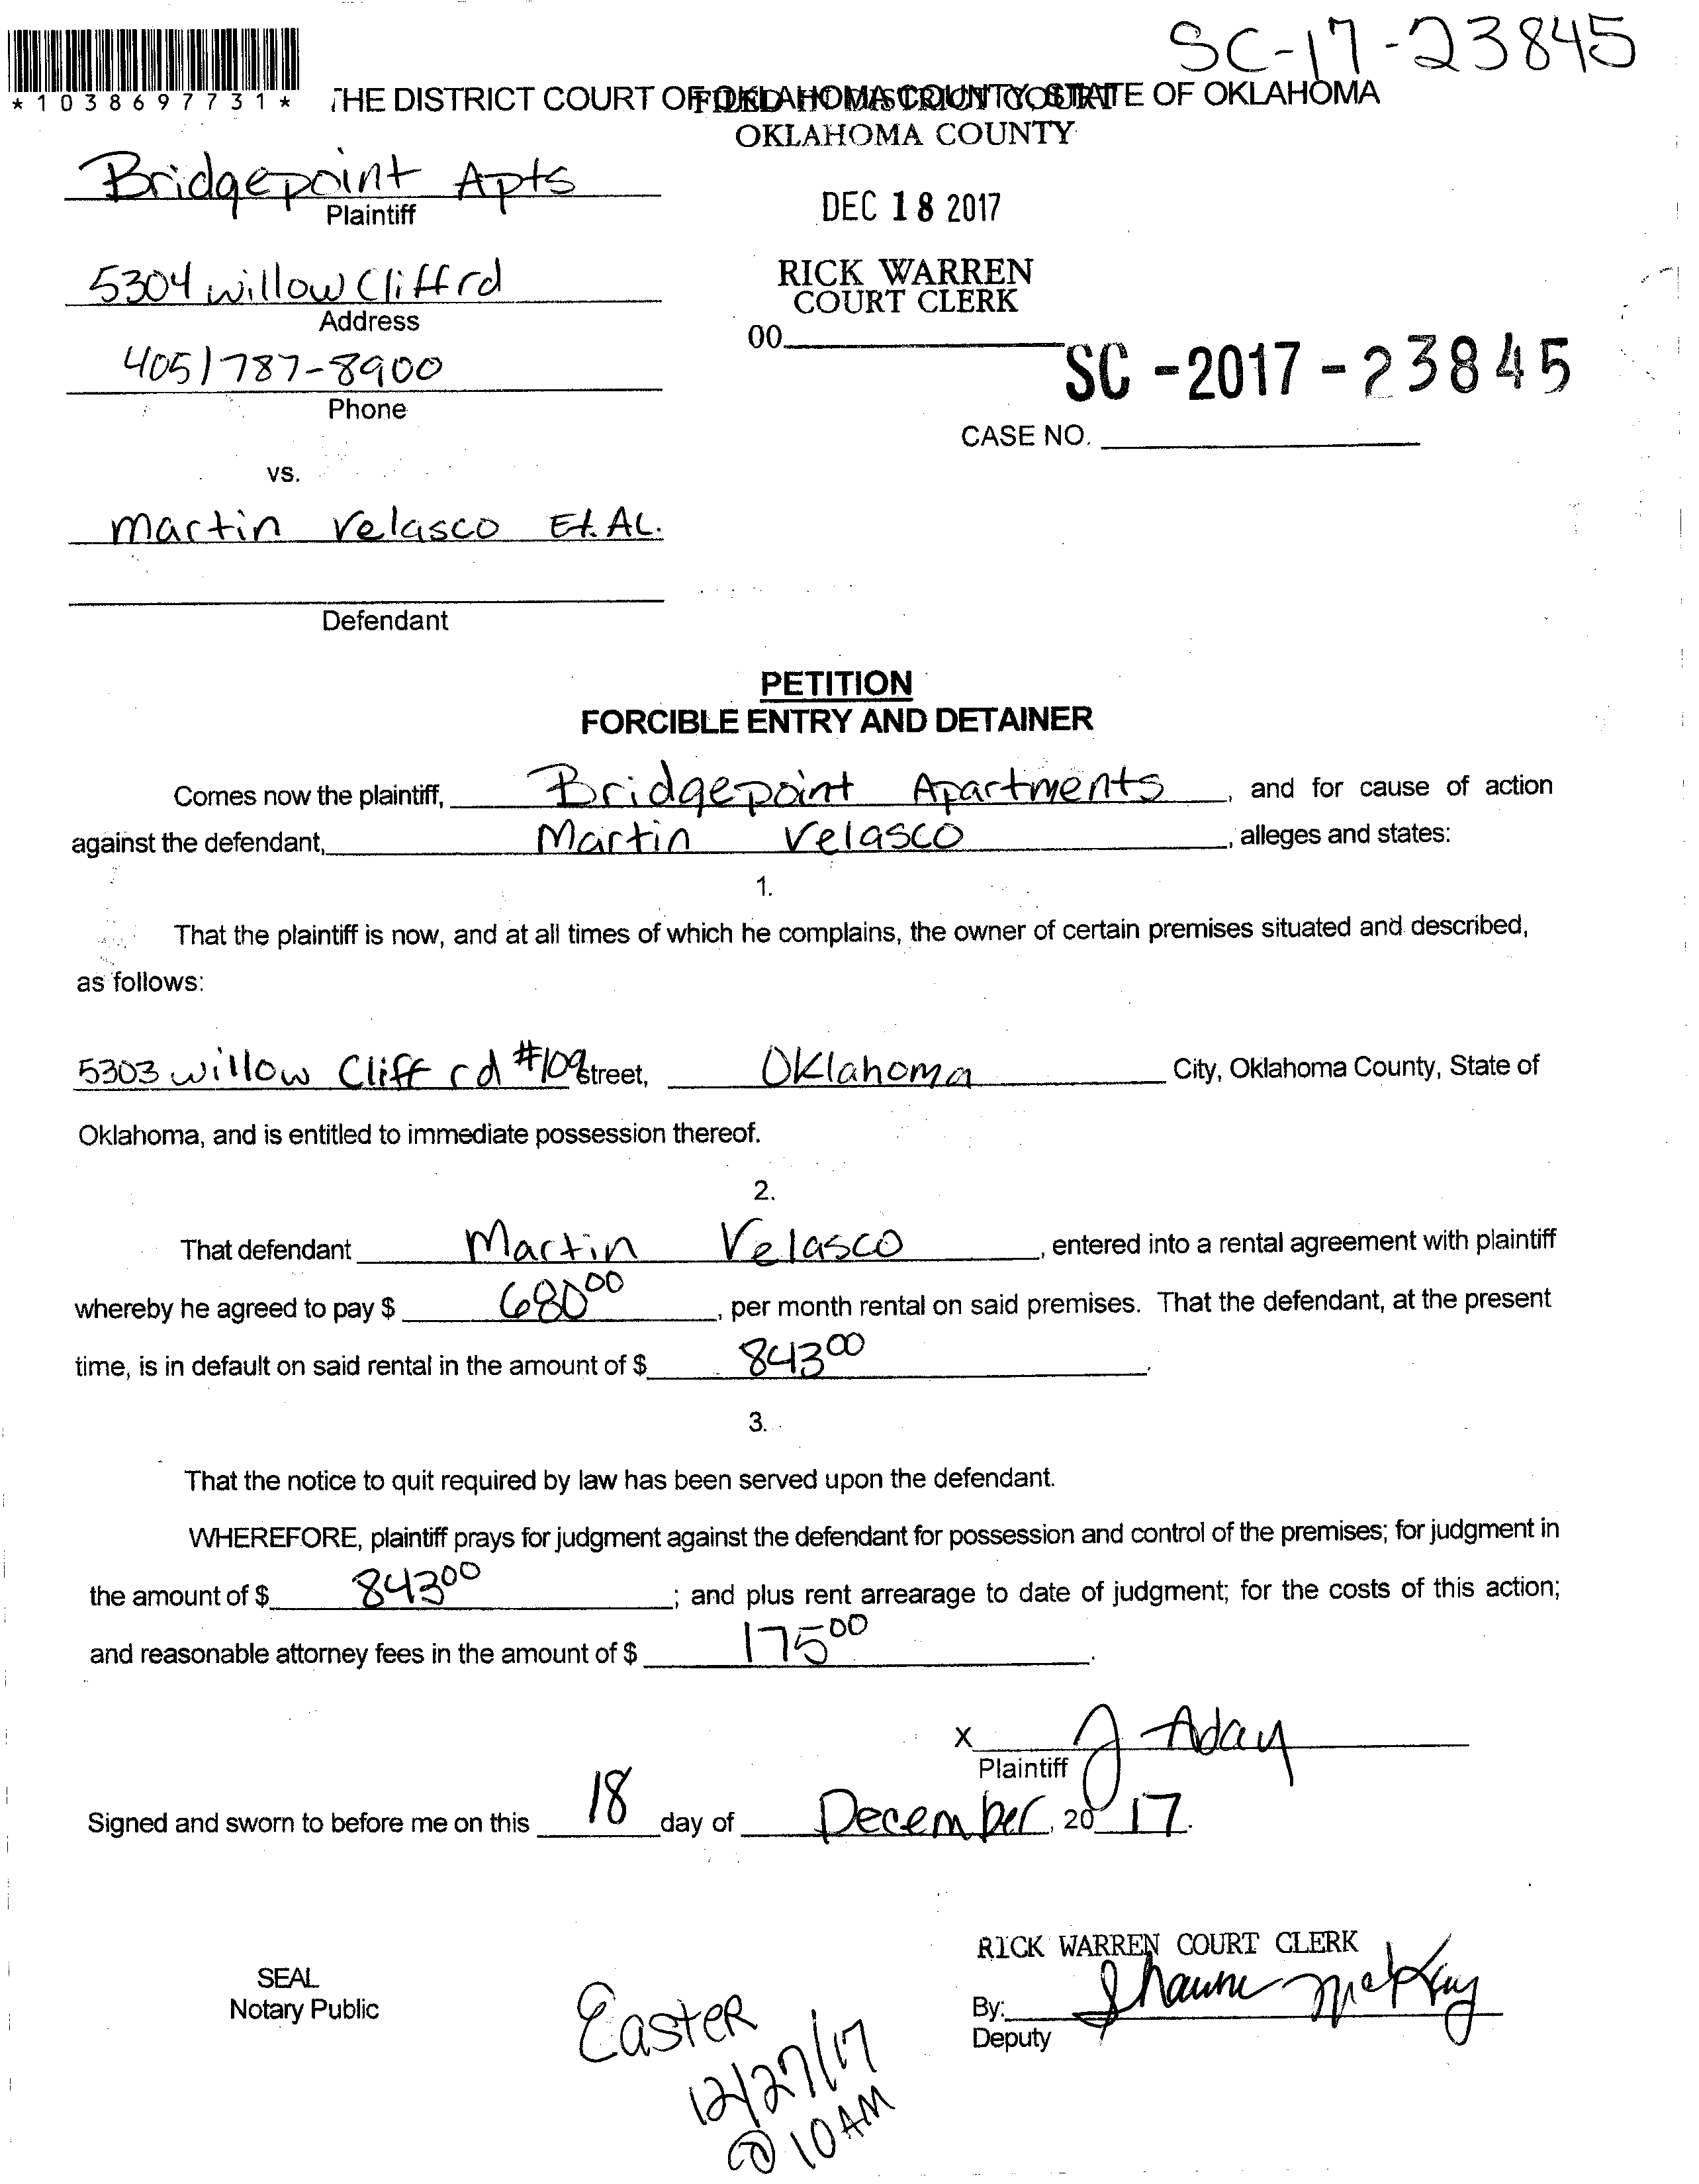 SC-17-23845
*1038697731*
THE DISTRICT COURT OF OKLAHOMA COUNTY, STATE OF OKLAHOMA
FILED IN DISTRICT COURT
OKLAHOMA COUNTY
Bridgepoint Apts
Plaintiff
DEC 18 2017
5304 willow Cliff rd
Address
RICK WARREN
COURT CLERK
00
405/787-8900
Phone
SC-2017-23845
CASE NO.
vs.
martin velasco Et. AL.
Defendant
PETITION
FORCIBLE ENTRY AND DETAINER
Comes now the plaintiff, Bridgepoint Apartments, and for cause of action
against the defendant, Martin Velasco, alleges and states:
1.
That the plaintiff is now, and at all times of which he complains, the owner of certain premises situated and described,
as follows:
5303 willow Cliff rd #109 Street, Oklahoma City, Oklahoma County, State of
Oklahoma, and is entitled to immediate possession thereof.
2.
That defendant Martin Velasco, entered into a rental agreement with plaintiff
whereby he agreed to pay $ 680 00, per month rental on said premises. That the defendant, at the present
time, is in default on said rental in the amount of $ 843 00.
3.
That the notice to quit required by law has been served upon the defendant.
WHEREFORE, plaintiff prays for judgment against the defendant for possession and control of the premises; for judgment in
the amount of $ 843 00; and plus rent arrearage to date of judgment; for the costs of this action;
and reasonable attorney fees in the amount of $ 175 00.
X J Aday
Plaintiff
Signed and sworn to before me on this 18 day of December, 20 17.
RICK WARREN COURT CLERK
SEAL
Notary Public
By: Shawne McKay
Deputy
Easter
12/27/17
@ 10AM